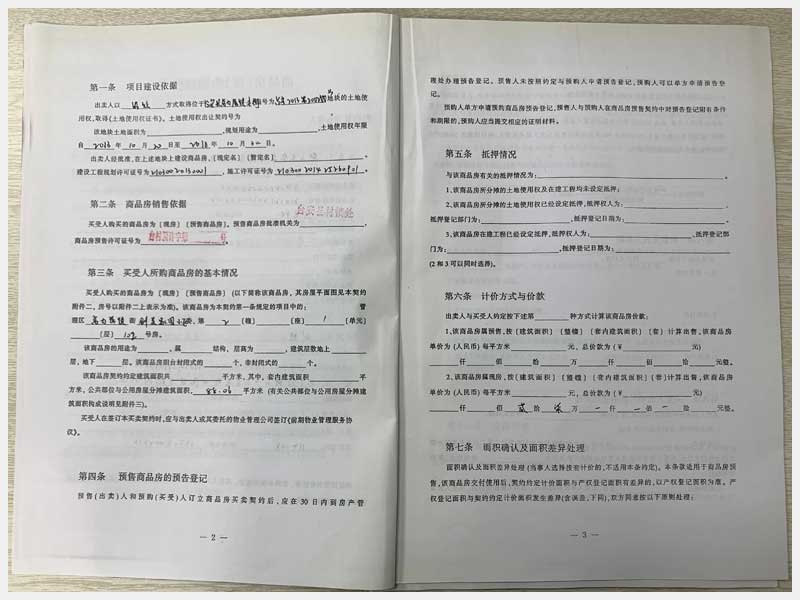 第一条 项目建设依据
出卖人以 方式取得位于 编号为 地块的土地使
用权,取得(土地使用权证书)。土地使用权出让契约号为
该地块土地面积为 ,规划用途为 ,土地使用权年限
自 2013 年 10 月 20 日至 年 10 月 日。
出卖人经批准,在上述地块上建设商品房,〔现定名〕〔暂定名〕 。
建设工程规划许可证号为 ,施工许可证号为 。
第二条 商品房销售依据
买受人购买的商品房为〔现房〕〔预售商品房〕。预售商品房批准机关为 ,
商品房预售许可证号为 。
第三条 买受人所购商品房的基本情况
买受人购买的商品房为〔现房〕〔预售商品房〕(以下简称该商品房,其房屋平面图见本契
约附件二,房号以附件二上表示为准)。该商品房为本契约第一条规定的项目中的: 管
理区 第 2 (幢) (座) 1 (单元)
(层) 号房。
该商品房的用途为 ,属 结构,层高为 ,建筑层数地上
层,地下 层。该商品房阳台封闭式的 个,非封闭式的 个。
该商品房契约约定建筑面积共 平方米,其中,套内建筑面积 平
方米,公共部位与公用房屋分摊建筑面积 86.06 平方米(有关公共部位与公用房屋分摊
建筑面积构成说明见附件三)。
买受人在签订本买卖契约时,应与出卖人或其委托的物业管理公司签订《前期物业管理服务协
议》。
第四条 预售商品房的预告登记
预售(出卖)人和预购(买受)人订立商品房买卖契约后,应在 30 日内到房产管
— 2 —
理处办理预告登记。预售人未按期约定与预购人申请预告登记,预购人可以单方申请预告登
记。
预购人单方申请预购商品房预告登记,预售人与预购人在商品房预售契约中对预告登记附有条件
和期限的,预购人应当提交相应的证明材料。
第五条 抵押情况
与该商品房有关的抵押情况为: 。
1、该商品房所分摊的土地使用权及在建工程均未设定抵押;
2、该商品房所分摊的土地使用权已经设定抵押,抵押权人为: ,
抵押登记部门为: ,抵押登记日期为: 。
3、该商品房在建工程已经设定抵押,抵押权人为: ,抵押登记部
门为: ,抵押登记日期为: 。
(2 和 3 可以同时选择)。
第六条 计价方式与价款
出卖人与买受人约定按下述第 种方式计算该商品房价款:
1、该商品房属预售,按〔建筑面积〕〔整幢〕〔套内建筑面积〕〔套〕计算出售,该商品房
单价为(人民币)每平方米 元,总价款为(¥ 元)
仟 佰 拾 万 仟 佰 拾 元整。
2、该商品房属现房,按〔建筑面积〕〔整幢〕〔套内建筑面积〕〔套〕计算出售,该商品房
单价为(人民币)每平方米 元,总价款为(¥ 元)
仟 佰 贰 拾 万 仟 佰 拾 元整。
第七条 面积确认及面积差异处理
面积确认及面积差异处理(当事人选择按套计价的,不适用本条约定)。本条款适用于商品房预
售,该商品房交付使用后,契约约定计价面积与产权登记面积有差异的,以产权登记面积为准。产
权登记面积与契约约定计价面积发生差异(含误差,下同),双方同意按以下原则处理:
— 3 —